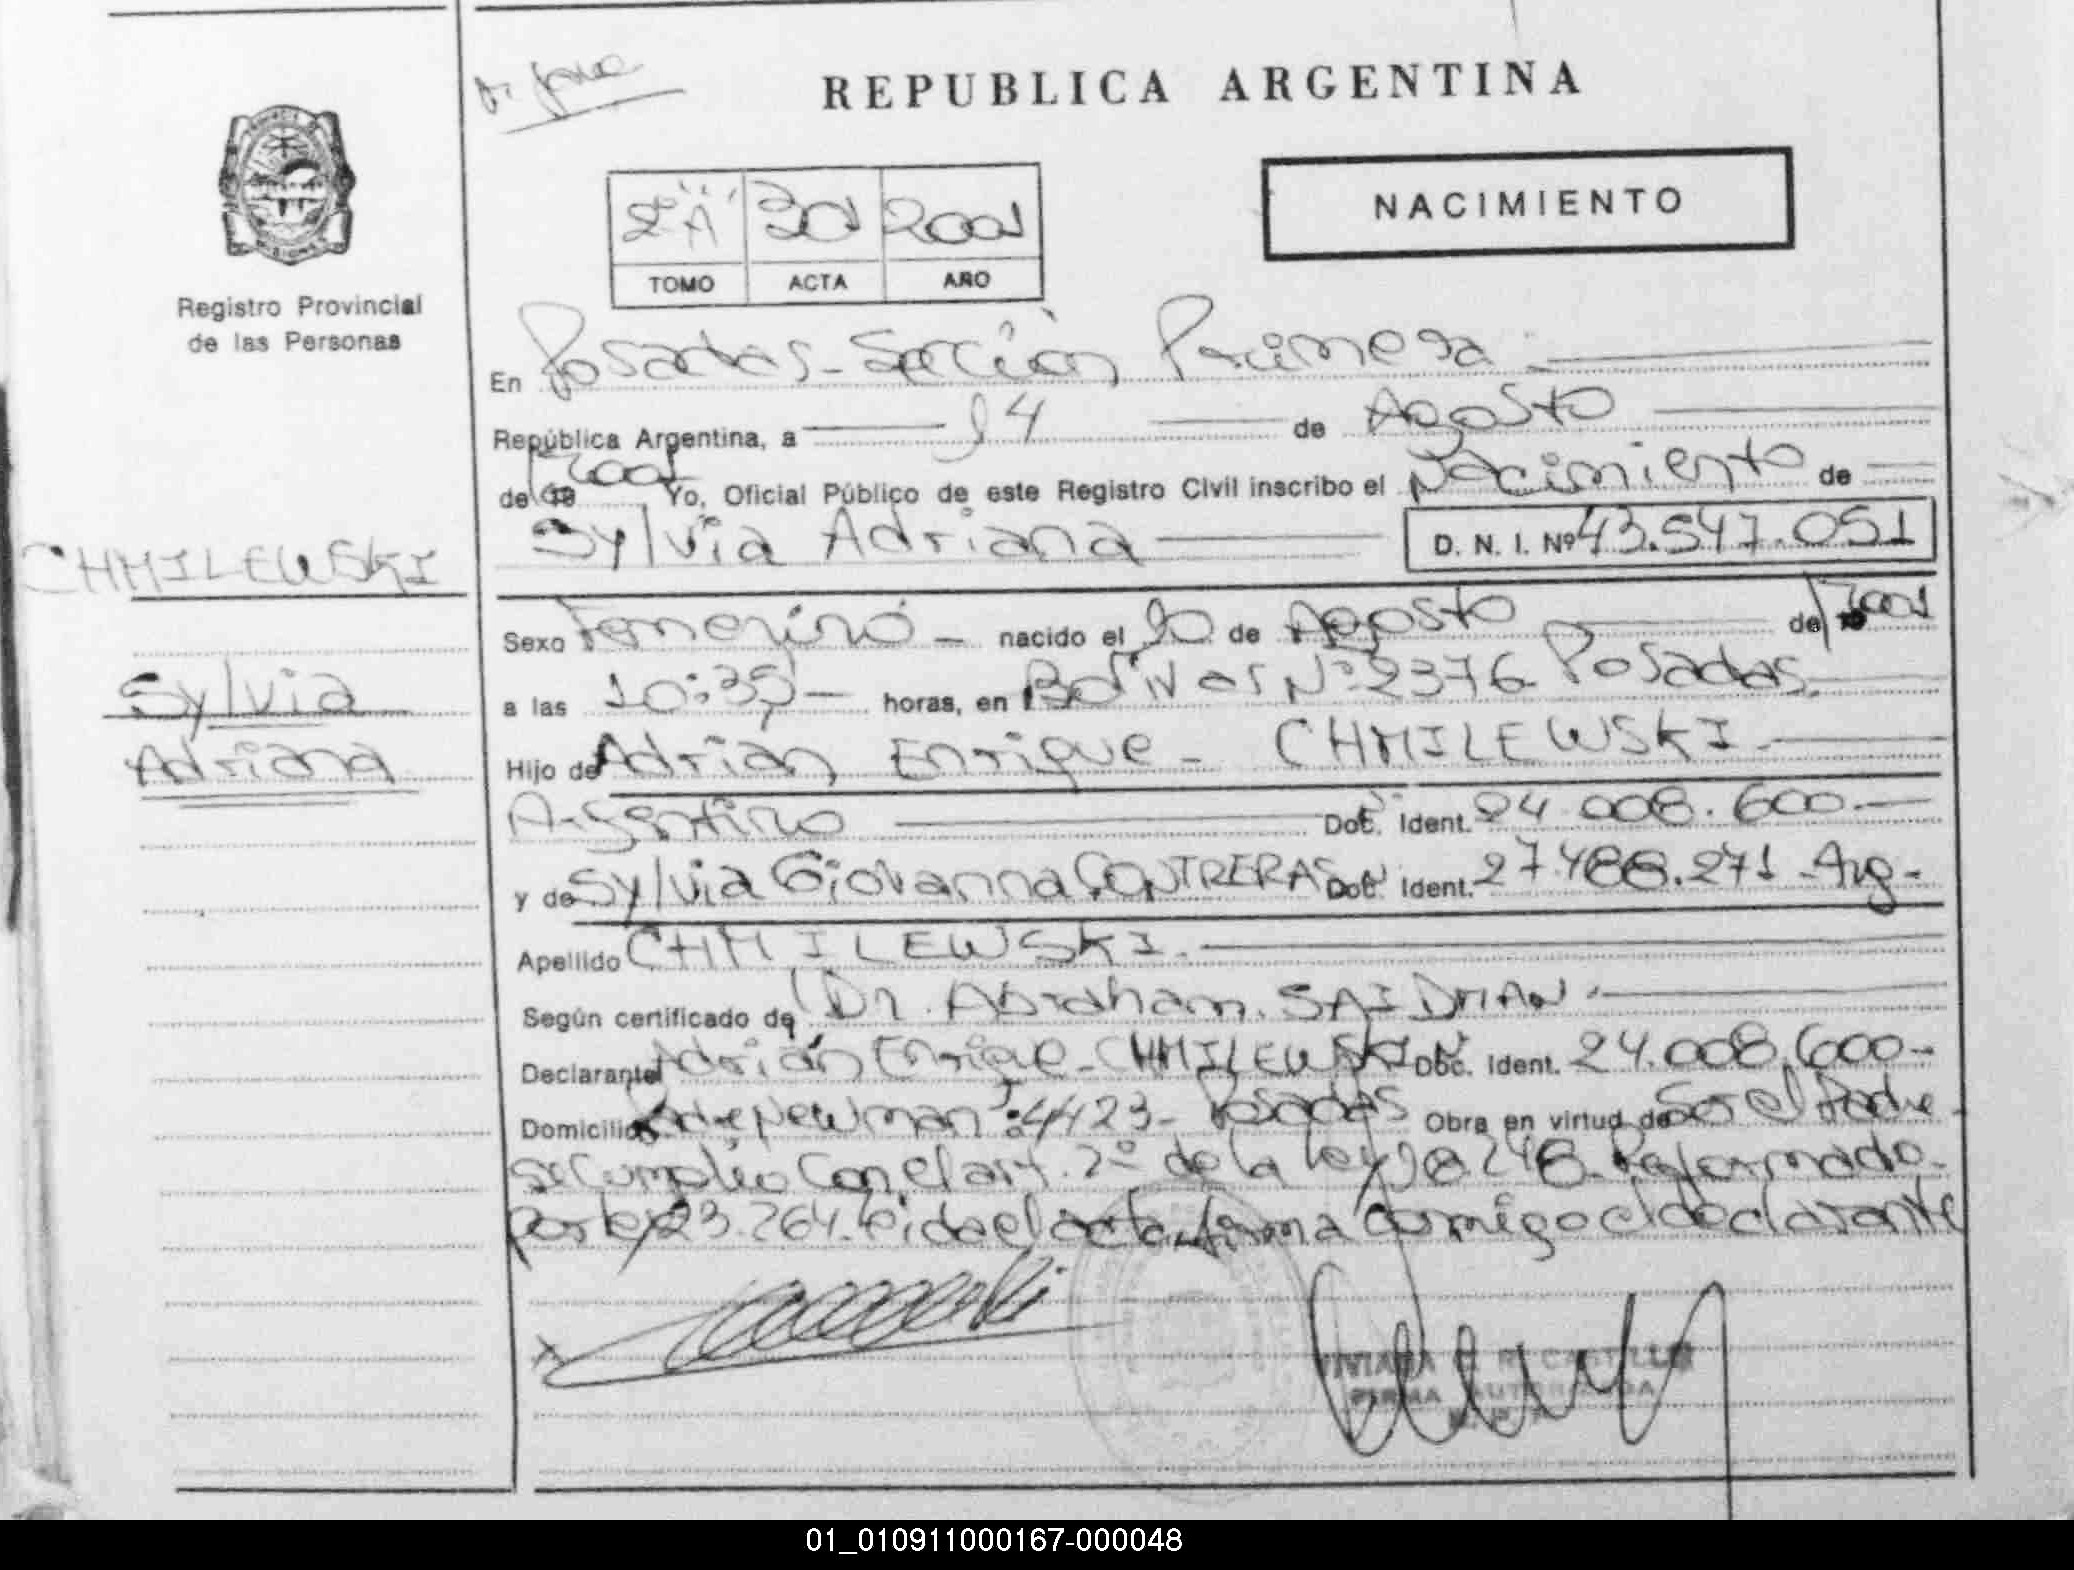 REPUBLICA ARGENTINA
NACIMIENTO
2º "A" 301 2001
TOMO ACTA AÑO
Registro Provincial
de las Personas
En Posadas - Sección Primera -
República Argentina, a 14 de Agosto
de 19 2001 Yo, Oficial Público de este Registro Civil inscribo el Nacimiento de
Sylvia Adriana D. N. I. Nº 43.547.051
CHMILEWSKI
Sylvia
Adriana
Sexo Femenino - nacido el 10 de Agosto de 19 2001
a las 10:35 - horas, en Bolivar Nº 2376 Posadas.
Hijo de Adrián Enrique - CHMILEWSKI -
Argentino Doc. Ident. 24.008.600.-
y de Sylvia Giovanna CONTRERAS Doc. Ident. 27.488.271 - Arg -
Apellido CHMILEWSKI.-
Según certificado de Dr. Abraham. SAIDMAN.-
Declarante Adrián Enrique - CHMILEWSKI Doc. Ident. 24.008.600.-
Domicilio Newman: 4423 - Posadas Obra en virtud de Ser el Padre -
Se Cumplio Con el art. 2º de la Ley 18.248 - Reformado
por ley 23.264. leida el acta, firma comigo el declarante
VIVIANA
FIRMA AUTORIZADA
01_010911000167-000048